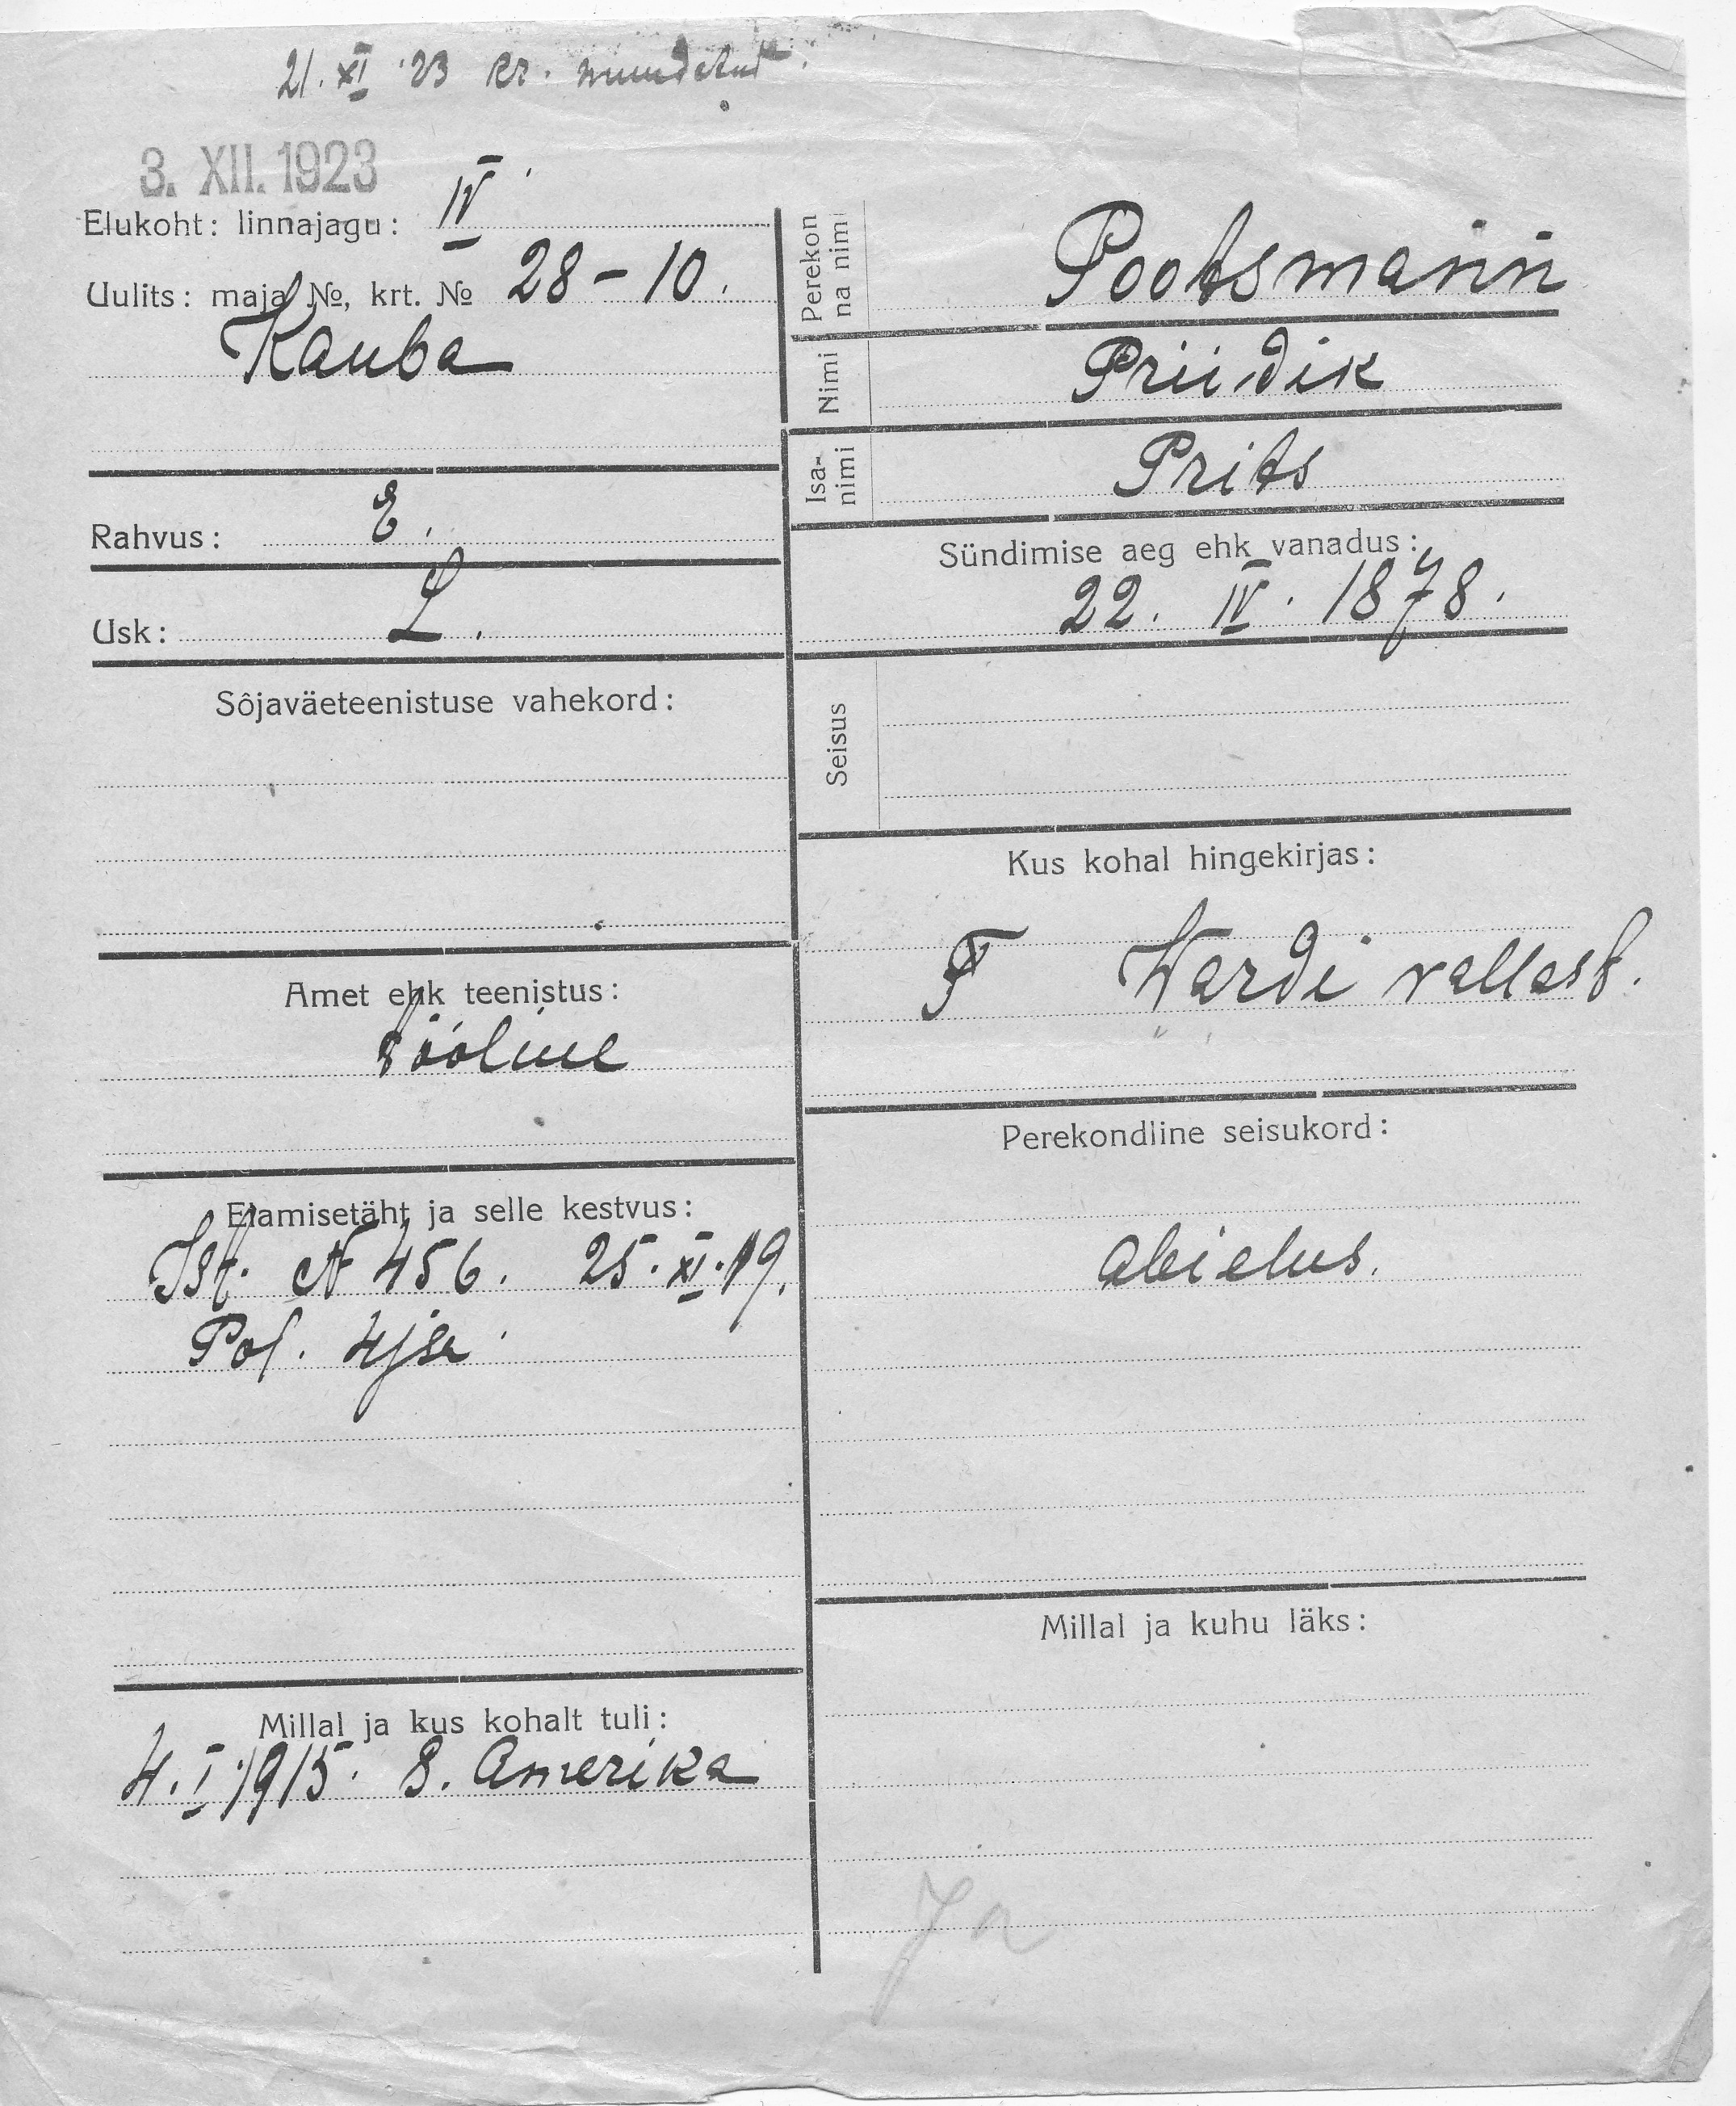 21. XI '23 kr. muudetud.
3. XII. 1923
Elukoht: linnajagu: IV
Uulits: maja №, krt. № 28 - 10.
Kauba
Rahvus: E.
Usk: L.
Sôjaväeteenistuse vahekord:
Amet ehk teenistus:
tööline
Elamisetäht ja selle kestvus:
Ist. № 456. 25. XI. 19.
Pol. 4 jsk
Millal ja kus kohalt tuli:
4. I 1915. S. Amerika
Perekon
na nimi
Pootsmann
Nimi
Priidik
Isa-
nimi
Prits
Sündimise aeg ehk vanadus:
22. IV. 1878.
Seisus
Kus kohal hingekirjas:
Wardi vallast.
Perekondline seisukord:
abielus.
Millal ja kuhu läks: